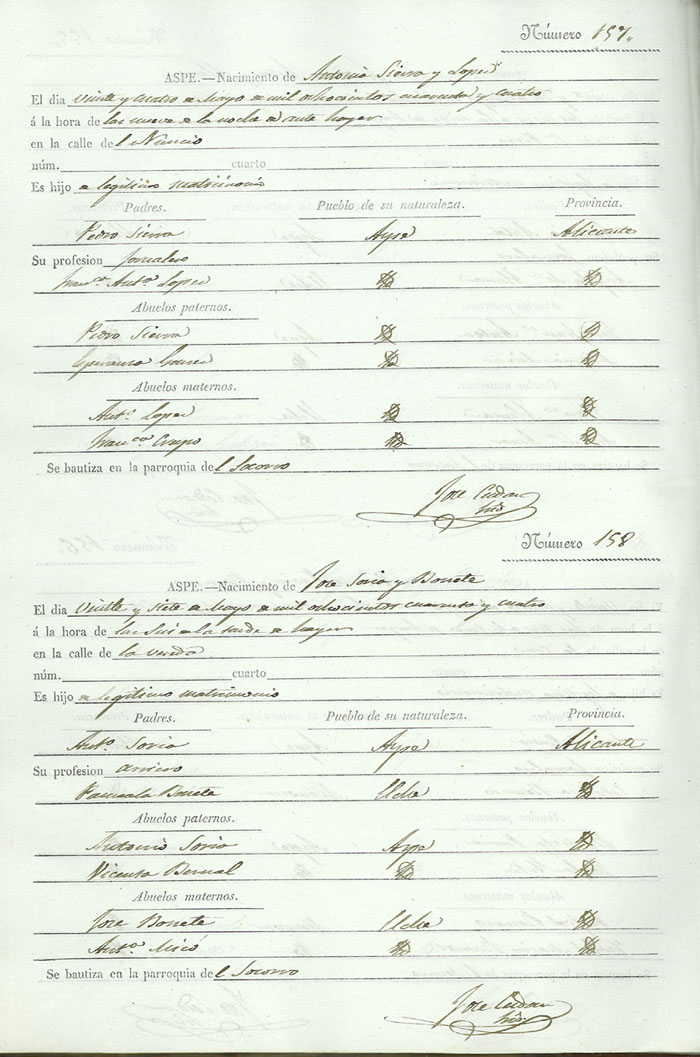 Número 157.
ASPE.—Nacimiento de Antonio Sierra y Lopez
El dia veinte y cuatro de Mayo de mil ochocientos cuarenta y cuatro
á la hora de las nueve de la noche de ante hayer
en la calle del Nuncio
núm. cuarto
Es hijo de legitimo matrimonio
Padres. Pueblo de su naturaleza. Provincia.
Pedro Sierra Aspe Alicante
Su profesion jornalero
Franca Anta Lopez
Abuelos paternos.
Pedro Sierra
Esperanza
Abuelos maternos.
Anto Lopez
Franca Crespo
Se bautiza en la parroquia del Socorro
Jose
Número 158
ASPE.—Nacimiento de Jose Soria y Bonete
El dia veinte y siete de Mayo de mil ochocientos cuarenta y cuatro
á la hora de las seis de la tarde de hayer
en la calle de la
núm. cuarto
Es hijo de legitimo matrimonio
Padres. Pueblo de su naturaleza. Provincia.
Anto Soria Aspe Alicante
Su profesion arriero
Pascuala Bonete Elche
Abuelos paternos.
Antonio Soria Aspe
Vicenta Bernal
Abuelos maternos.
Jose Bonete Elche
Anta Micó
Se bautiza en la parroquia del Socorro
Jose